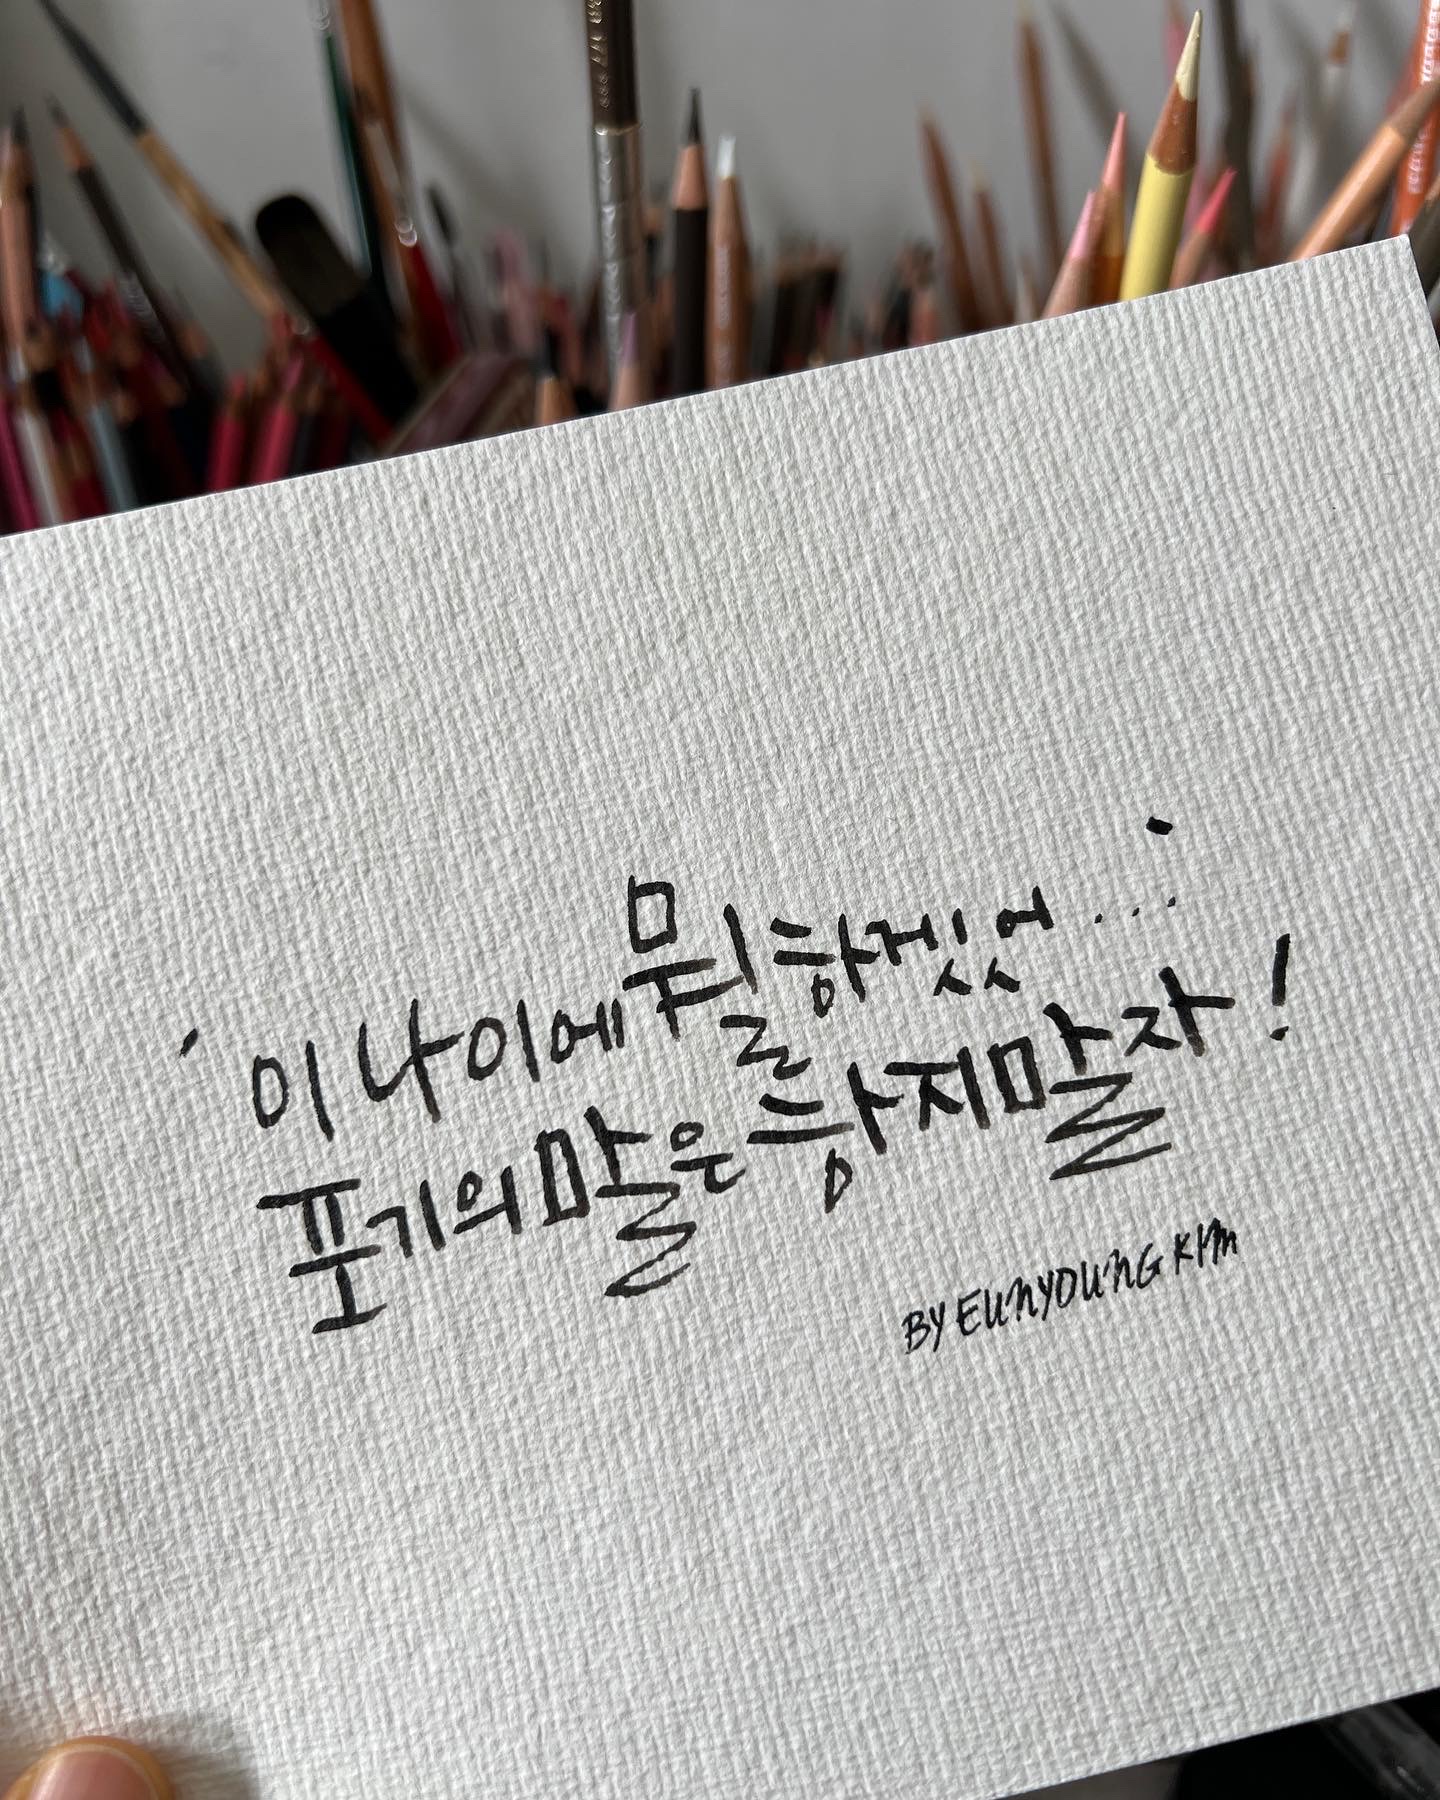 '이 나이에 뭘 하겠어...'
포기의 말은 하지말자!
BY EUNYOUNG KIM